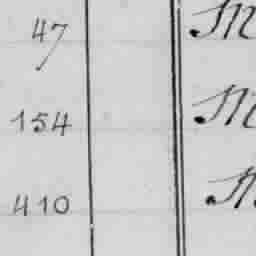 47 M
154 M
410